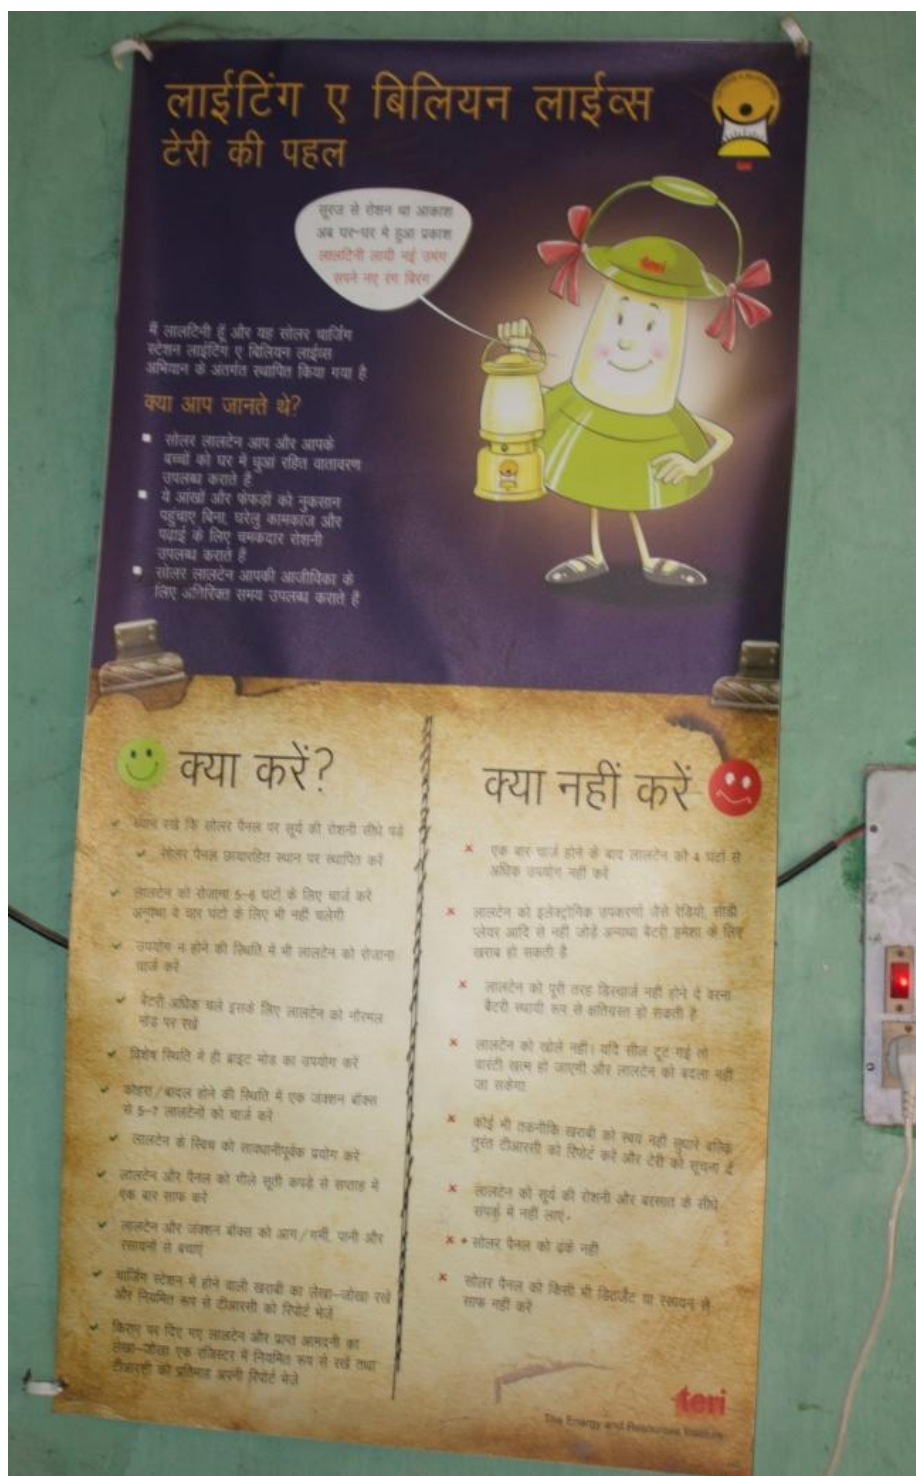 लाईटिंग ए बिलियन लाईव्स
टेरी की पहल
सूरज से रोशन था आकाश
अब घर-घर मे हुआ प्रकाश
लालटिनी लायी नई उमंग
सपने नए रंग बिरंग
teri
मैं लालटिनी हूँ और यह सोलर चार्जिंग
स्टेशन लाईटिंग ए बिलियन लाईव्स
अभियान के अंतर्गत स्थापित किया गया है
क्या आप जानते थे?
सोलर लालटेन आप और आपके
बच्चों को घर में धुआं रहित वातावरण
उपलब्ध कराते है
ये आंखों और फेफड़ों को नुकसान
पहुंचाए बिना, घरेलु कामकाज और
पढ़ाई के लिए चमकदार रोशनी
उपलब्ध कराते हैं
सोलर लालटेन आपकी आजीविका के
लिए अतिरिक्त समय उपलब्ध कराते है
क्या करें?
ध्यान रखे कि सोलर पैनल पर सूर्य की रोशनी सीधे पड़े
सोलर पैनल छायारहित स्थान पर स्थापित करें
लालटेन को रोजाना 5-6 घंटों के लिए चार्ज करें
अन्यथा ये चार घंटों के लिए भी नहीं चलेगी
उपयोग न होने की स्थिति में भी लालटेन को रोजाना
चार्ज करें
बैटरी अधिक चले इसके लिए लालटेन को नौरमल
मोड पर रखें
विशेष स्थिति में ही ब्राइट मोड का उपयोग करें
कोहरा/बादल होने की स्थिति में एक जंक्शन बॉक्स
से 5-7 लालटेनों को चार्ज करें
लालटेन के स्विच को सावधानीपूर्वक प्रयोग करें
लालटेन और पैनल को गीले सूती कपड़े से सप्ताह में
एक बार साफ करें
लालटेन और जंक्शन बॉक्स को आग/गर्मी, पानी और
रसायनों से बचाएं
चार्जिंग स्टेशन में होने वाली खराबी का लेखा-जोखा रखें
और नियमित रूप से टीआरसी को रिपोर्ट भेजें
किराए पर दिए गए लालटेन और प्राप्त आमदनी का
लेखा-जोखा एक रजिस्टर में नियमित रूप से रखें तथा
टीआरसी को प्रतिमाह अपनी रिपोर्ट भेजें
क्या नहीं करें
एक बार चार्ज होने के बाद लालटेन को 4 घंटों से
अधिक उपयोग नहीं करें
लालटेन को इलेक्ट्रोनिक उपकरणों जैसे रेडियो, सीडी
प्लेयर आदि से नहीं जोड़े अन्यथा बैटरी हमेशा के लिए
खराब हो सकती है
लालटेन को पूरी तरह डिस्चार्ज नहीं होने दे वरना
बैटरी स्थायी रूप से क्षतिग्रस्त हो सकती है
लालटेन को खोले नहीं। यदि सील टूट गई तो
वारंटी खत्म हो जाएगी और लालटेन को बदला नहीं
जा सकेगा
कोई भी तकनीकि खराबी को स्वयं नहीं सुधारे बल्कि
तुरंत टीआरसी को रिपोर्ट करें और टेरी को सूचना दें
लालटेन को सूर्य की रोशनी और बरसात के सीधे
संपर्क में नहीं लाएं
सोलर पैनल को ढंके नहीं
सोलर पैनल को किसी भी डिटर्जेंट या रसायन से
साफ नहीं करें
teri
The Energy and Resources Institute